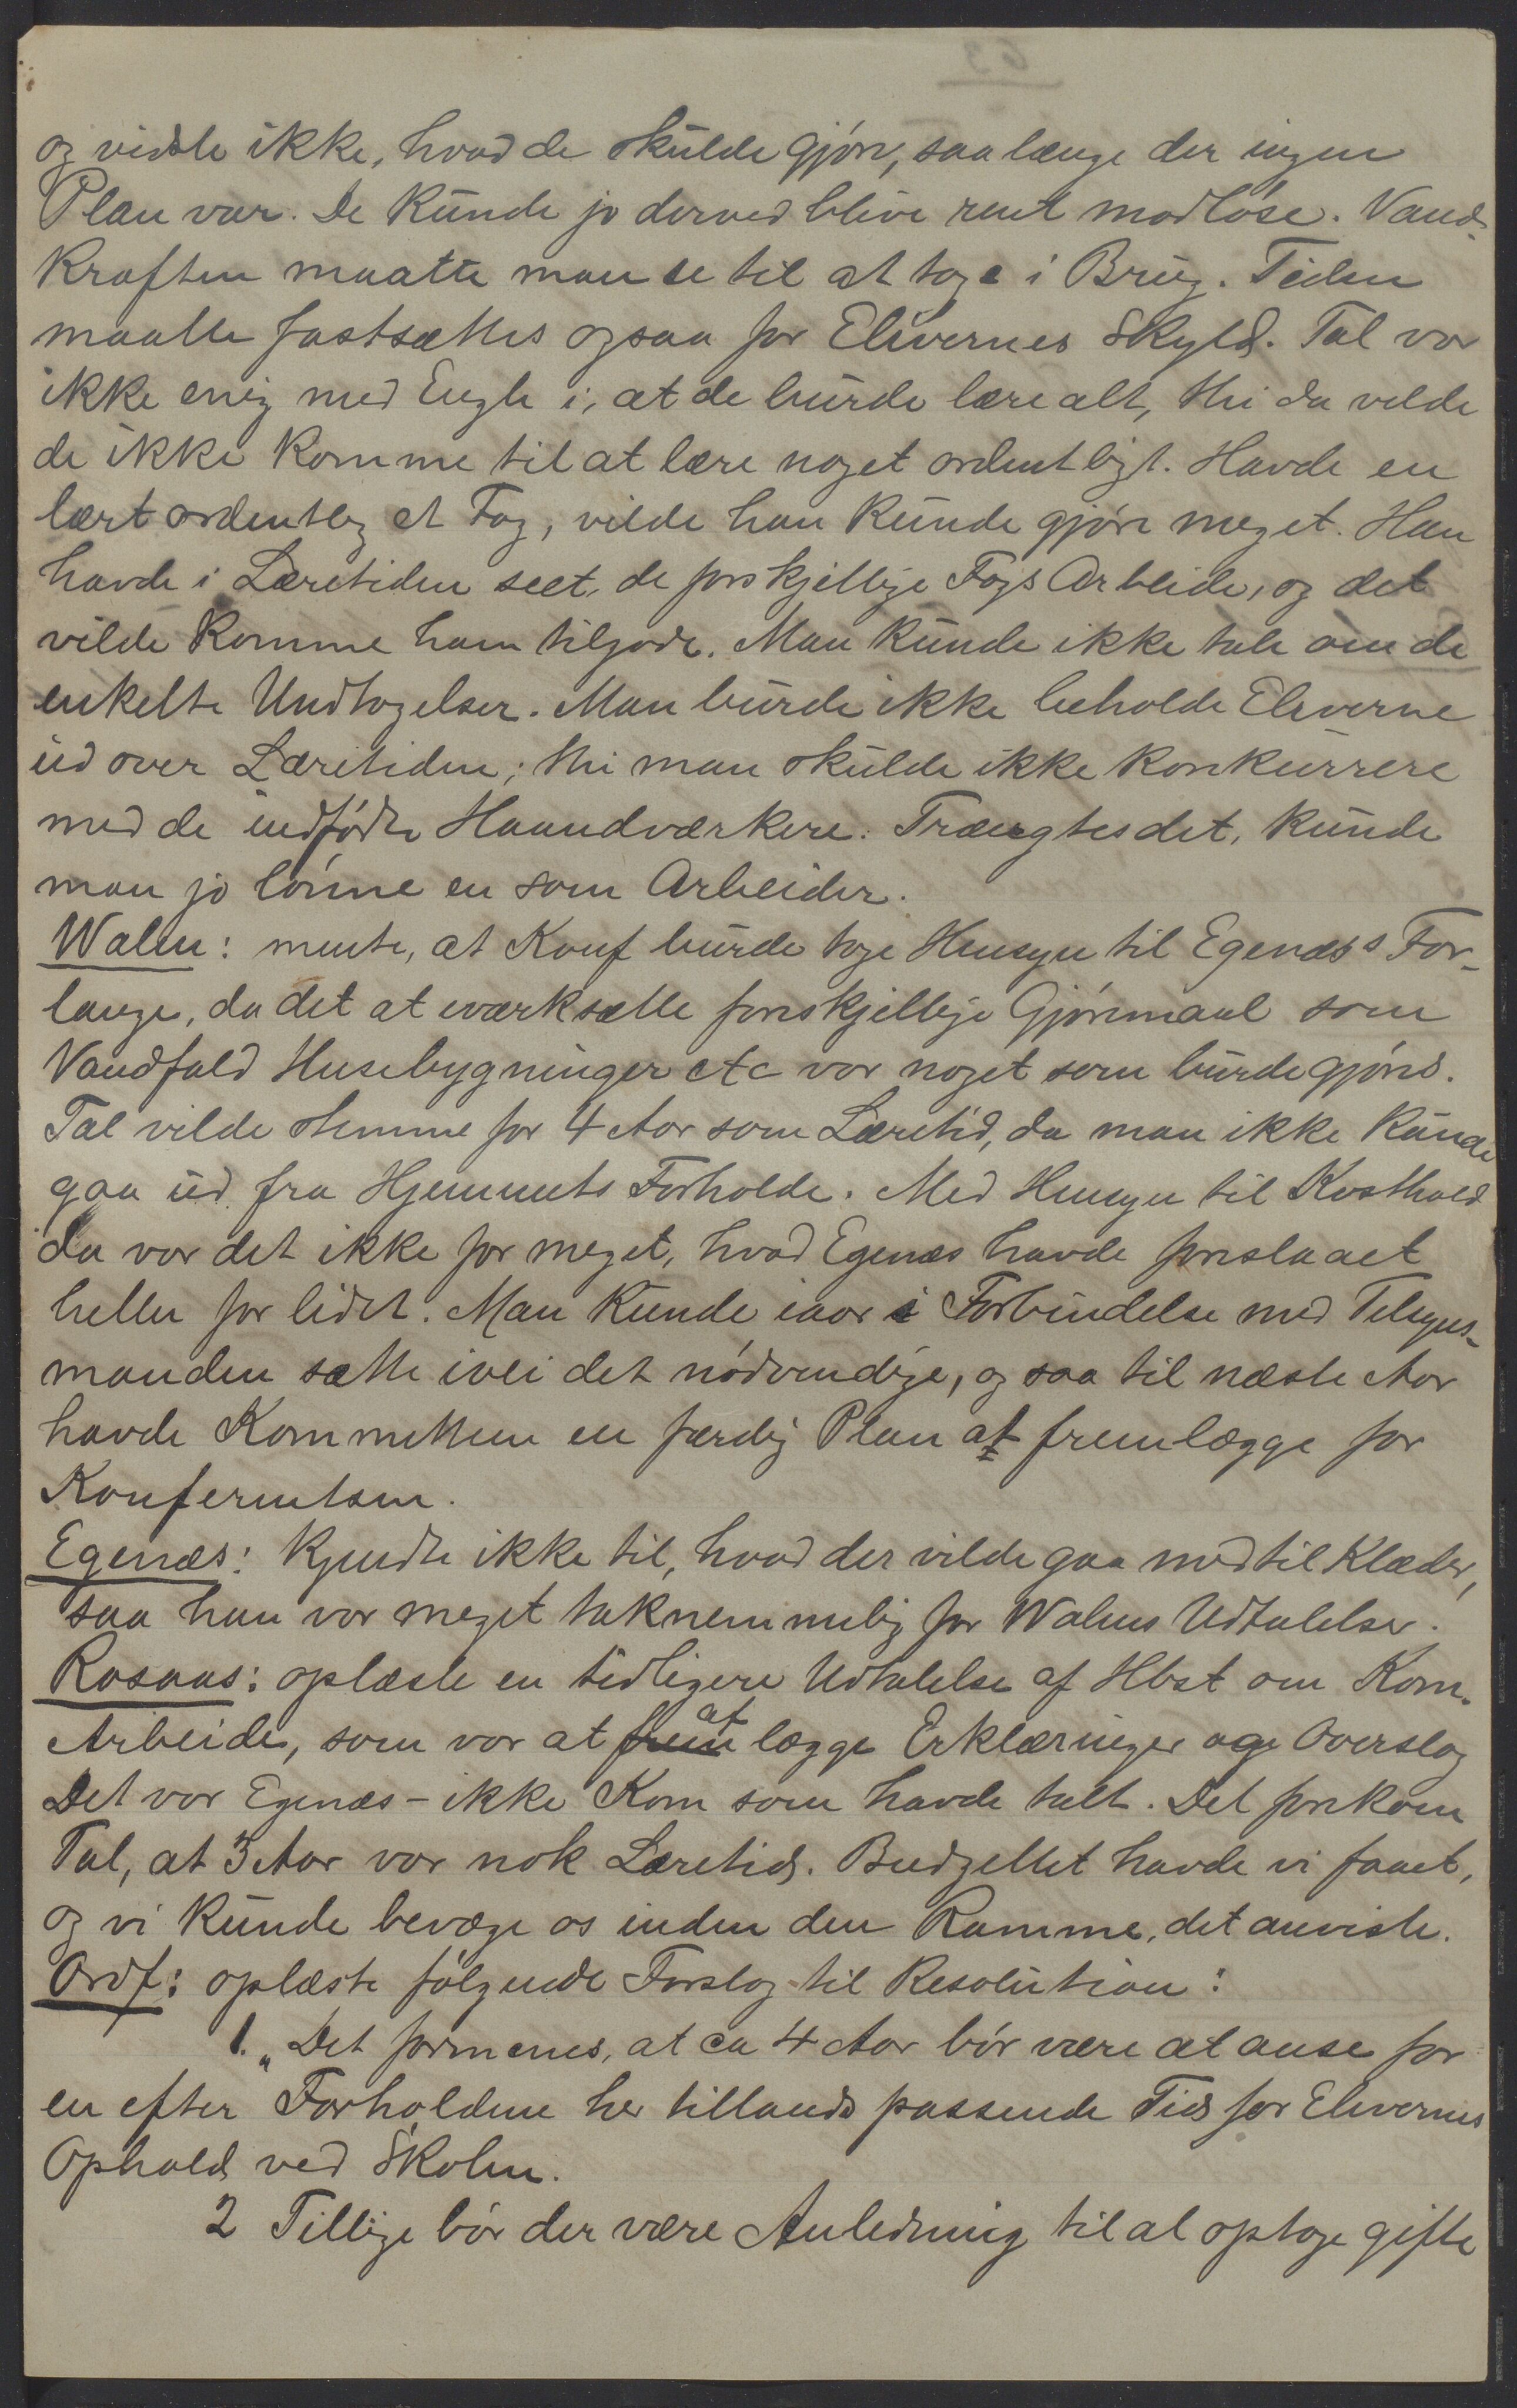 og vidste ikke, hvad de skulde gjøre, saa længe der ingen
Plan var. De kunde jo derved blive rent modløse. Vand-
kraften maatte man se til at tage i Brug. Tiden
maatte fastsættes ogsaa for Elevernes Skyld. Tal. var
ikke enig med Engh i, at de burde lære alt, thi da vilde
de ikke komme til at lære noget ordentligt. Havde en
lært ordentlig et Fag, vilde han kunde gjøre meget. Han
havde i Læretiden seet de forskjellige Fags Arbeide, og det
vilde komme ham tilgode. Man kunde ikke tale om de
enkelte Undtagelser. Man burde ikke beholde Eleverne
ud over Læretiden; thi man skulde ikke konkurrere
med de indfødte Haandværkere. Trængtes det, kunde
man jo lønne en som Arbeider.
Walen: mente, at Konf burde tage Hensyn til Egenæs's For-
lange, da det at iværksætte forskjellige Gjøremaal som
Vandfald Husebygninger etc var noget som burde gjøres.
Tal vilde stemme for 4 Aar som Læretid, da man ikke kunde
gaa ud fra Hjemmets Forholde. Med Hensyn til Kosthold
da var det ikke for meget, hvad Egenæs havde foreslaaet
heller for lidet. Man kunde iaar i Forbindelse med Tilsyns-
manden sætte ivei det nødvendige, og saa til næste Aar
havde Kommitteen en færdig Plan at fremlægge for
Konferentsen.
Egenæs: kjendte ikke til, hvad der vilde gaa med til Klæder,
saa han var meget taknemmelig for Walens Udtalelser.
Rosaas: oplæste en tidligere Udtalelse af Hbst om Kom.
Arbeide, som var at frem af lægge Erklæringer og Overslag
Det var Egenæs - ikke Kom som havde talt. Det forekom
Tal, at 3 Aar var nok Læretid. Budgettet havde vi faaet,
og vi kunde bevæge os inden den Ramme, det anviste.
Ordf: oplæste følgende Forslag til Resolution:
1. „Det formenes, at ca 4 Aar bør være at anse for
en efter Forholdene her tillands passende Tid for Elevernes
Ophold ved Skolen.
2 Tillige bør der være Anledning til at optage gifte